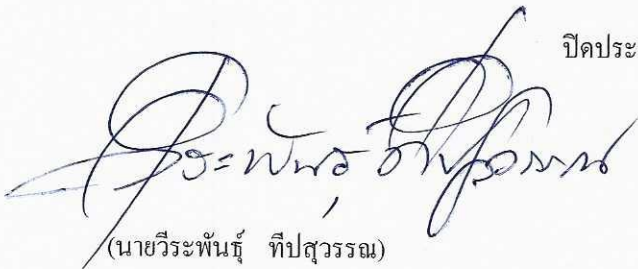 ปิดประ
วีระพันธุ์ ทีปสุวรรณ
(นายวีระพันธุ์ ทีปสุวรรณ)